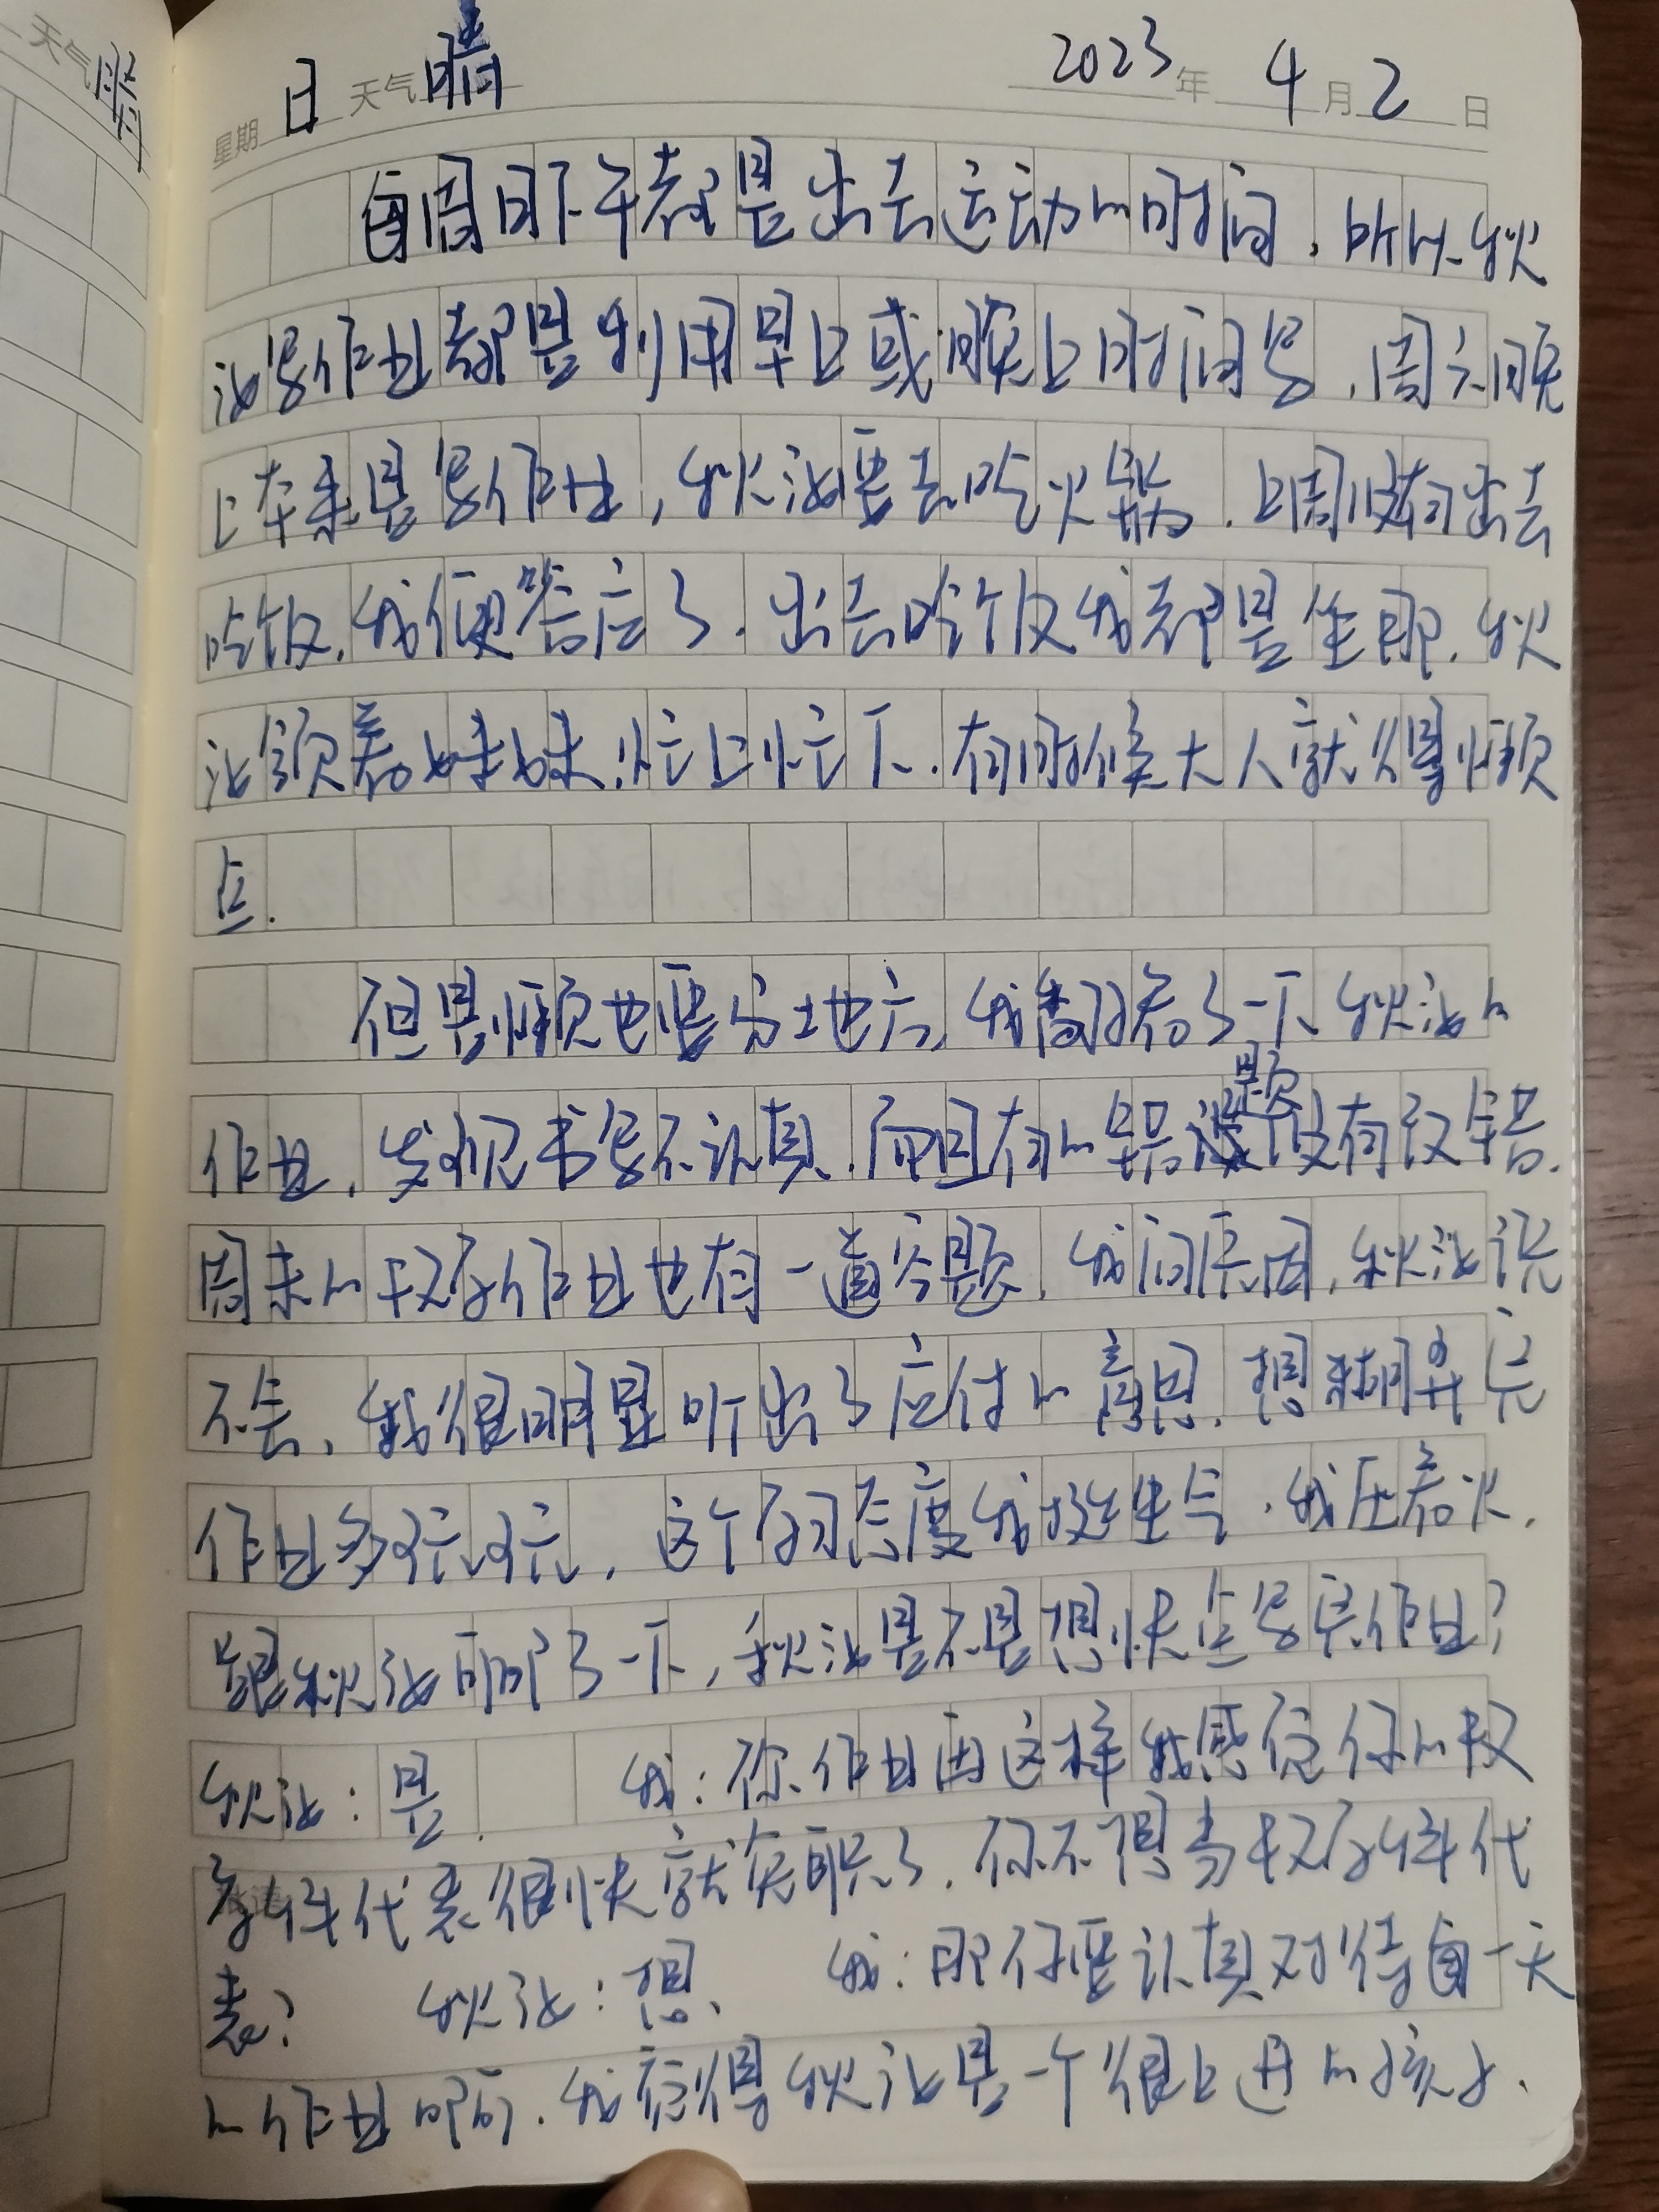 天气
星期 日 天气 晴 2023年 4月 2日
每周日下午都是出去运动的时间,所以秋
汝写作业都是利用早上或晚上时间写,周六晚
上本来是写作业,秋汝要去吃火锅.上周没有出去
吃饭,我便答应了.出去吃饭我都是坐那,秋
汝领着妹妹,忙上忙下.有时候大人就得惯
点.
但是惯也要分地方,我翻看了一下秋汝的
作业,发现书写不认真.而且有的错题没有改错.
周末的数学作业也有一道空题,我问原因,秋汝说
不会,我很明显听出了应付的意思.想糊弄完
作业多玩玩,这个学习态度我挺生气.我压着火,
跟秋汝聊了一下,秋汝是不是想快点写完作业?
秋汝:是. 我:你作业因这样我感觉你的数
学课代表很快就免职了.你不想当数学课代
表? 秋汝:想. 我:那你要认真对待每一天
的作业即可.我觉得秋汝是一个很上进的孩子.